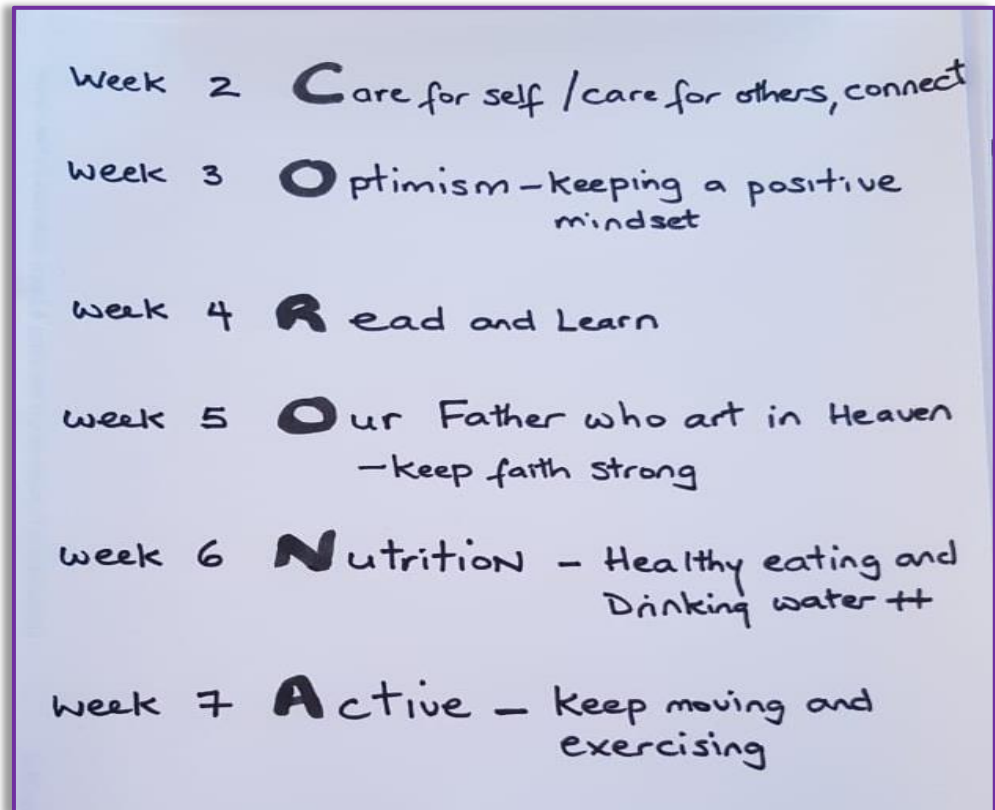 Week 2 Care for self / care for others, connect
week 3 Optimism – keeping a positive
mindset
week 4 Read and Learn
week 5 Our Father who art in Heaven
– keep faith strong
week 6 Nutrition – Healthy eating and
Drinking water ++
week 7 Active – Keep moving and
exercising